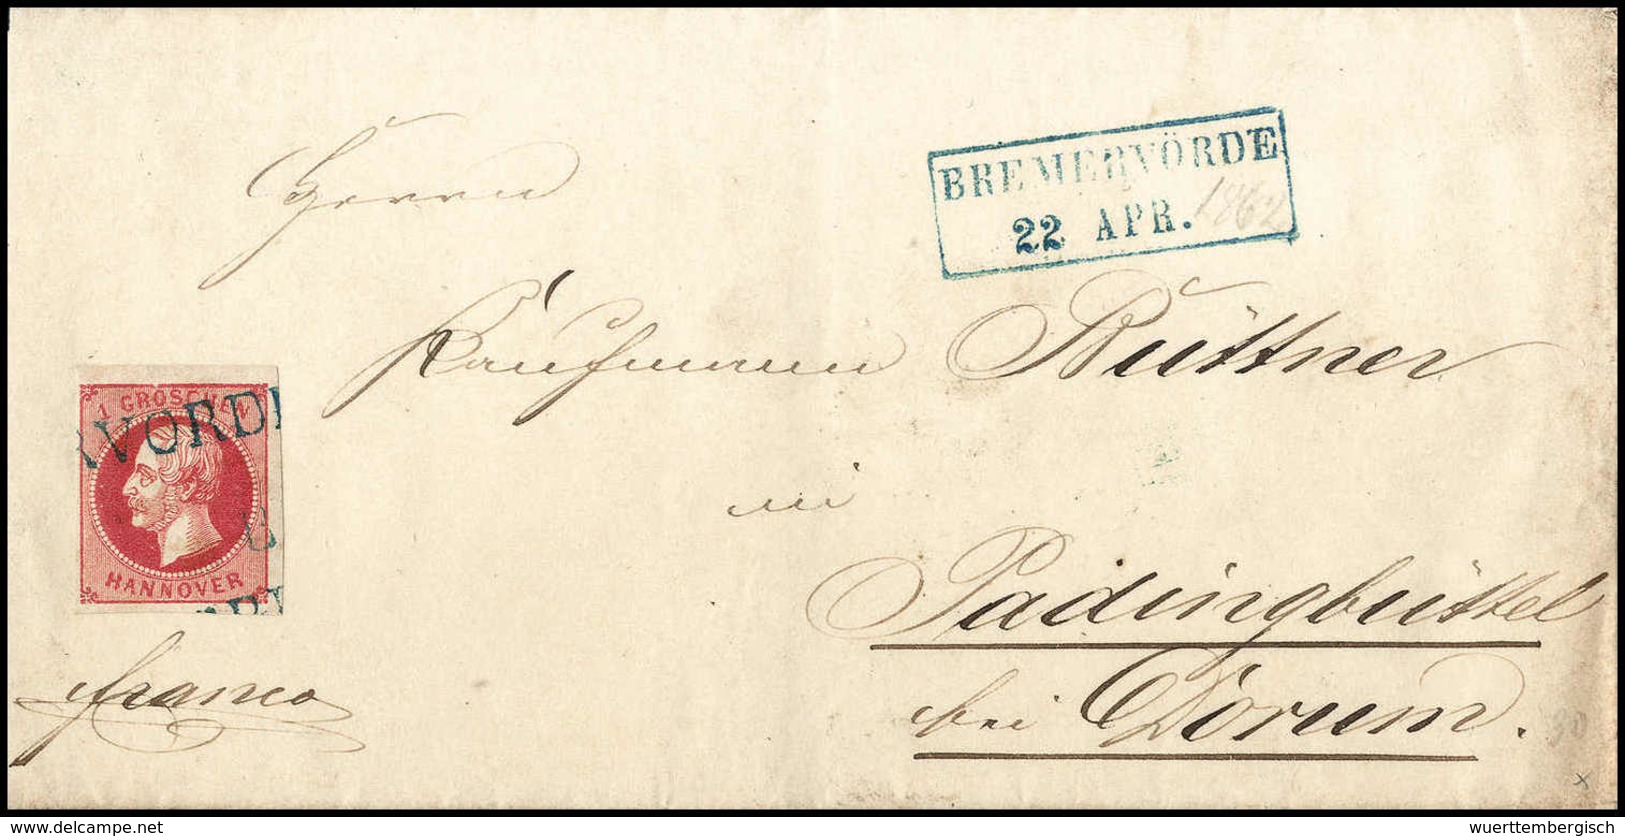 Herrn
BREMERVÖRDE
22 APR. 1862
Kaufmann Büttner
1 GROSCHEN
RVÖRDE
HANNOVER
in
Padingbüttel
bei Dorum.
franco
30
x
delcampe.net
wuerttembergisch